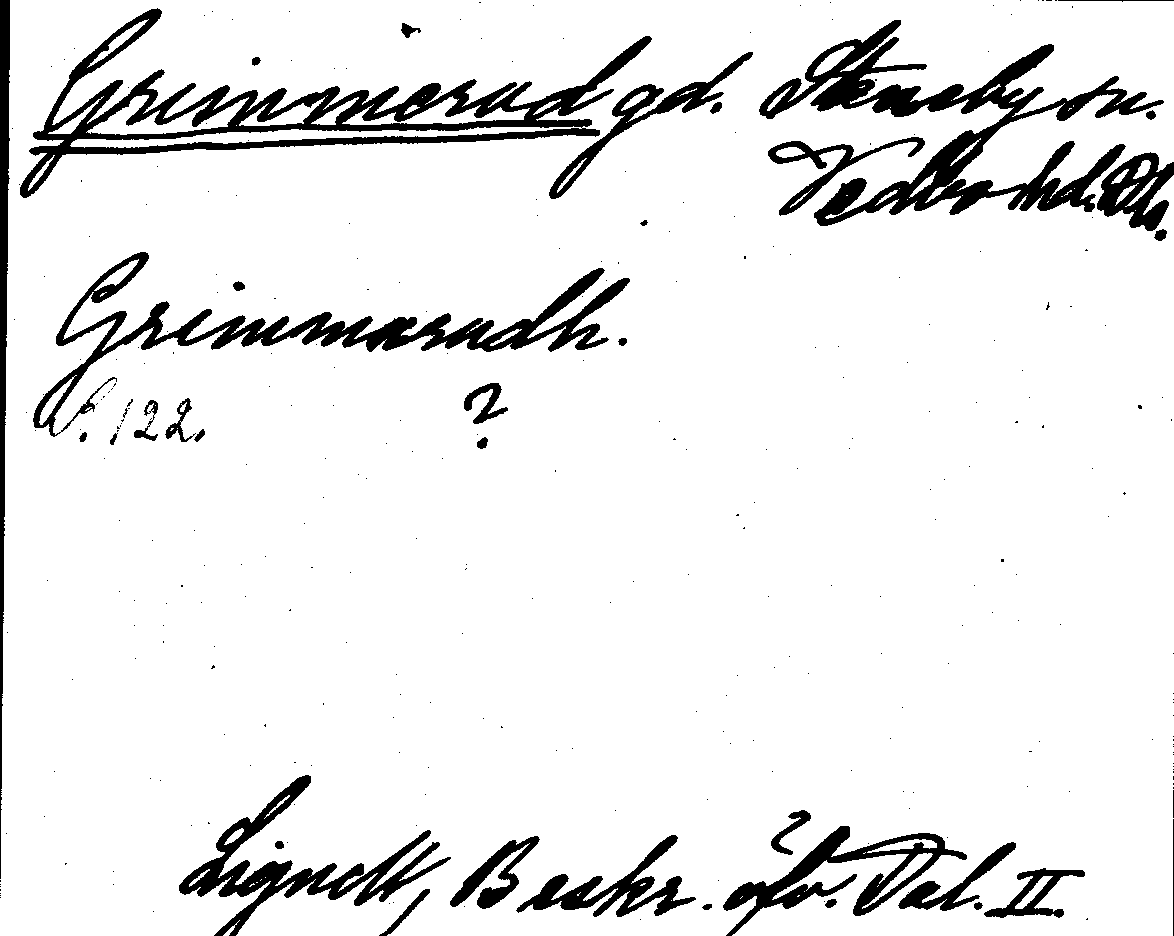 Grimmerud gd. Steneby sn.
Vedbo hd. Dls.
Grimmarudh.
S. 122. ?
Lignell, Beskr. öfv. Dal. II.